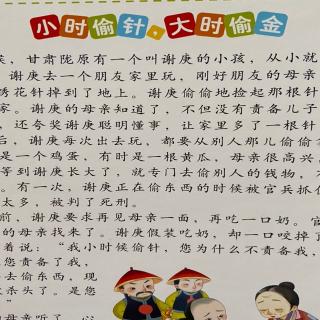 小时偷针,大时偷金
，甘肃陇原有一个叫谢庚的小孩，从小就
谢庚去一个朋友家里玩，刚好朋友的母亲
绣花针掉到了地上。谢庚偷偷地捡起那根针
家。谢庚的母亲知道了，不但没有责备儿子
，还夸奖谢庚聪明懂事，让家里多了一根针
后，谢庚每次出去玩，都要从别人那儿偷偷
是一个鸡蛋，有时是一根黄瓜，母亲很高兴
等到谢庚长大了，就专门去偷别人的钱物，
。有一次，谢庚正在偷东西的时候被官兵抓
太多，被判了死刑。
前，谢庚要求再见母亲一面，再吃一口奶。官
的母亲找来了。谢庚假装吃奶，却一口咬掉了
着说：“我小时候偷针，您为什么不责备我，
您责备了我，
去偷东西，现
杀头了。是您
”
的母亲听了，心